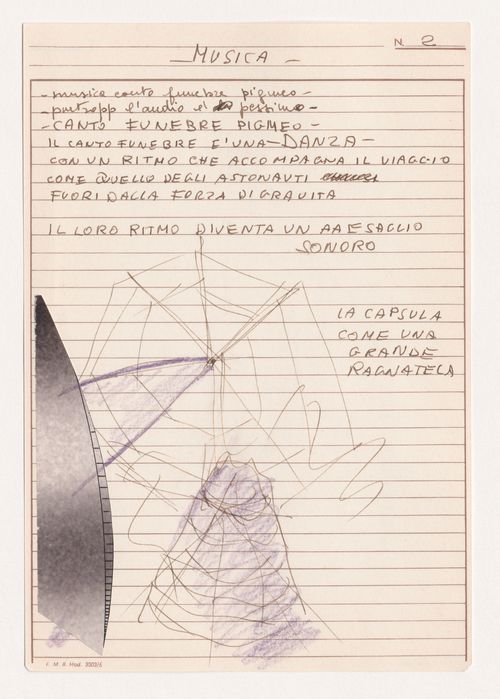 N. 2
- MUSICA -
- musica canto funebre pigmeo -
- purtropp l'audio è pessimo -
- CANTO FUNEBRE PIGMEO -
IL CANTO FUNEBRE E' UNA - DANZA -
CON UN RITMO CHE ACCOMPAGNA IL VIAGGIO
COME QUELLO DEGLI ASTONAUTI
FUORI DALLA FORZA DI GRAVITA
IL LORO RITMO DIVENTA UN
SONORO
LA CAPSULA
COME UNA
GRANDE
RAGNATELA
F. M. B. Mod. 3002/6